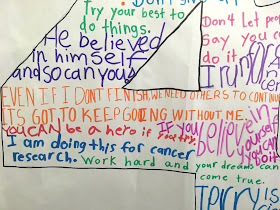 Try your best to
do things.
He believed
in himself
and so can you
EVEN IF I DON'T FINISH, WE NEED OTHERS TO CONTINUE
IS GOT TO KEEP GOING WITHOUT ME.
You CAN be a hero if you try.
I am doing this for cancer
research. Work hard and your dreams can
come true.
If you
believe in
yourself
you can
do it
Don't let peop
say you c
do it
Terry's